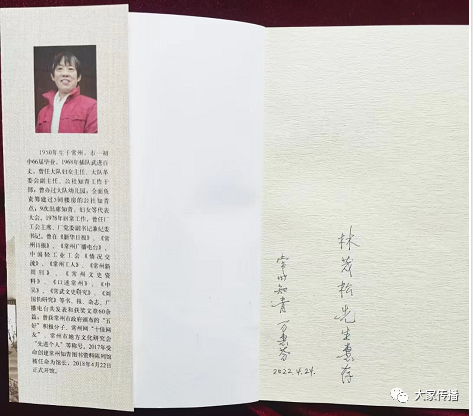 1950年生于常州，市一初
中66届毕业，1968年插队武进百
丈，曾任大队妇女主任、大队革
委会副主任、公社知青工作干
部；曾办过大队幼儿园；全面负
责筹建过3间楼房的公社知青
点；9次出席知青、妇女等代表
大会。1978年回常工作，曾任厂
工会主席、厂党委副书记兼纪委
书记。曾在《新华日报》、《常
州日报》、《常州广播电台》、
中国轻工业工会《情况交
流》、《常州工人》、《常州新
周刊》、《常州文史资
料》、《口述常州》、《中
吴》、《常武文史研究》、《刘
国钧研究》等书、报、杂志、广
播电台共发表和获奖文章60余
篇；曾获常州市政府颁布的“五
好”积极分子、常州网“十佳网
友”、常州市地方文化研究会
“先进个人”等称号。2017年受
命创建常州知青图书资料陈列馆
被任命为馆长，2018年4月22日
正式开馆。
林茂松先生惠存
常州知青
2022.4.24.
大家传播